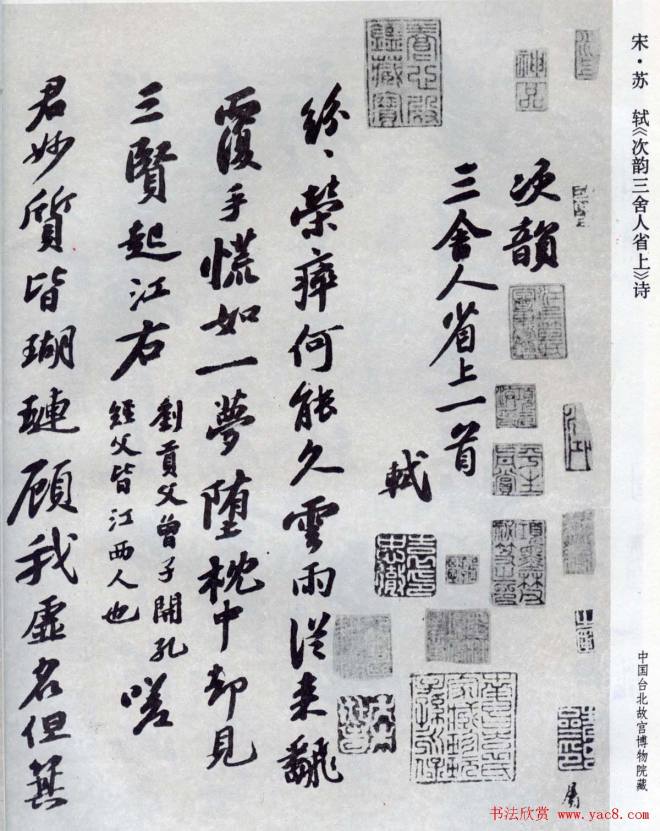 宋·苏 轼《次韵三舍人省上》诗
中国台北故宫博物院藏
神品
平生真賞
次韻
三舍人省上一首
軾
紛〻榮瘁何能久雲雨從来翻
覆手慌如一夢堕枕中却見
三賢起江右
劉貢父曾子開孔
經父皆江西人也
嗟
君妙質皆瑚璉顧我虚名但箕
书法欣赏 www.yac8.com